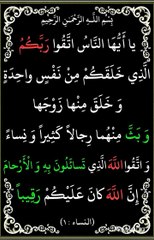 بِسْمِ اللَّـهِ الرَّحْمَـٰنِ الرَّحِيمِ
يا أَيُّهَا النَّاسُ اتَّقُوا رَبَّكُمُ
الَّذِي خَلَقَكُمْ مِنْ نَفْسٍ واحِدَةٍ
وَ خَلَقَ مِنْها زَوْجَها
وَ بَثَّ مِنْهُما رِجالاً كَثِيراً وَ نِساءً
وَ اتَّقُوا اللَّهَ الَّذِي تَسائَلُونَ بِهِ وَ الْأَرْحامَ
إِنَّ اللَّهَ كانَ عَلَيْكُمْ رَقِيباً
(النساء : ١)